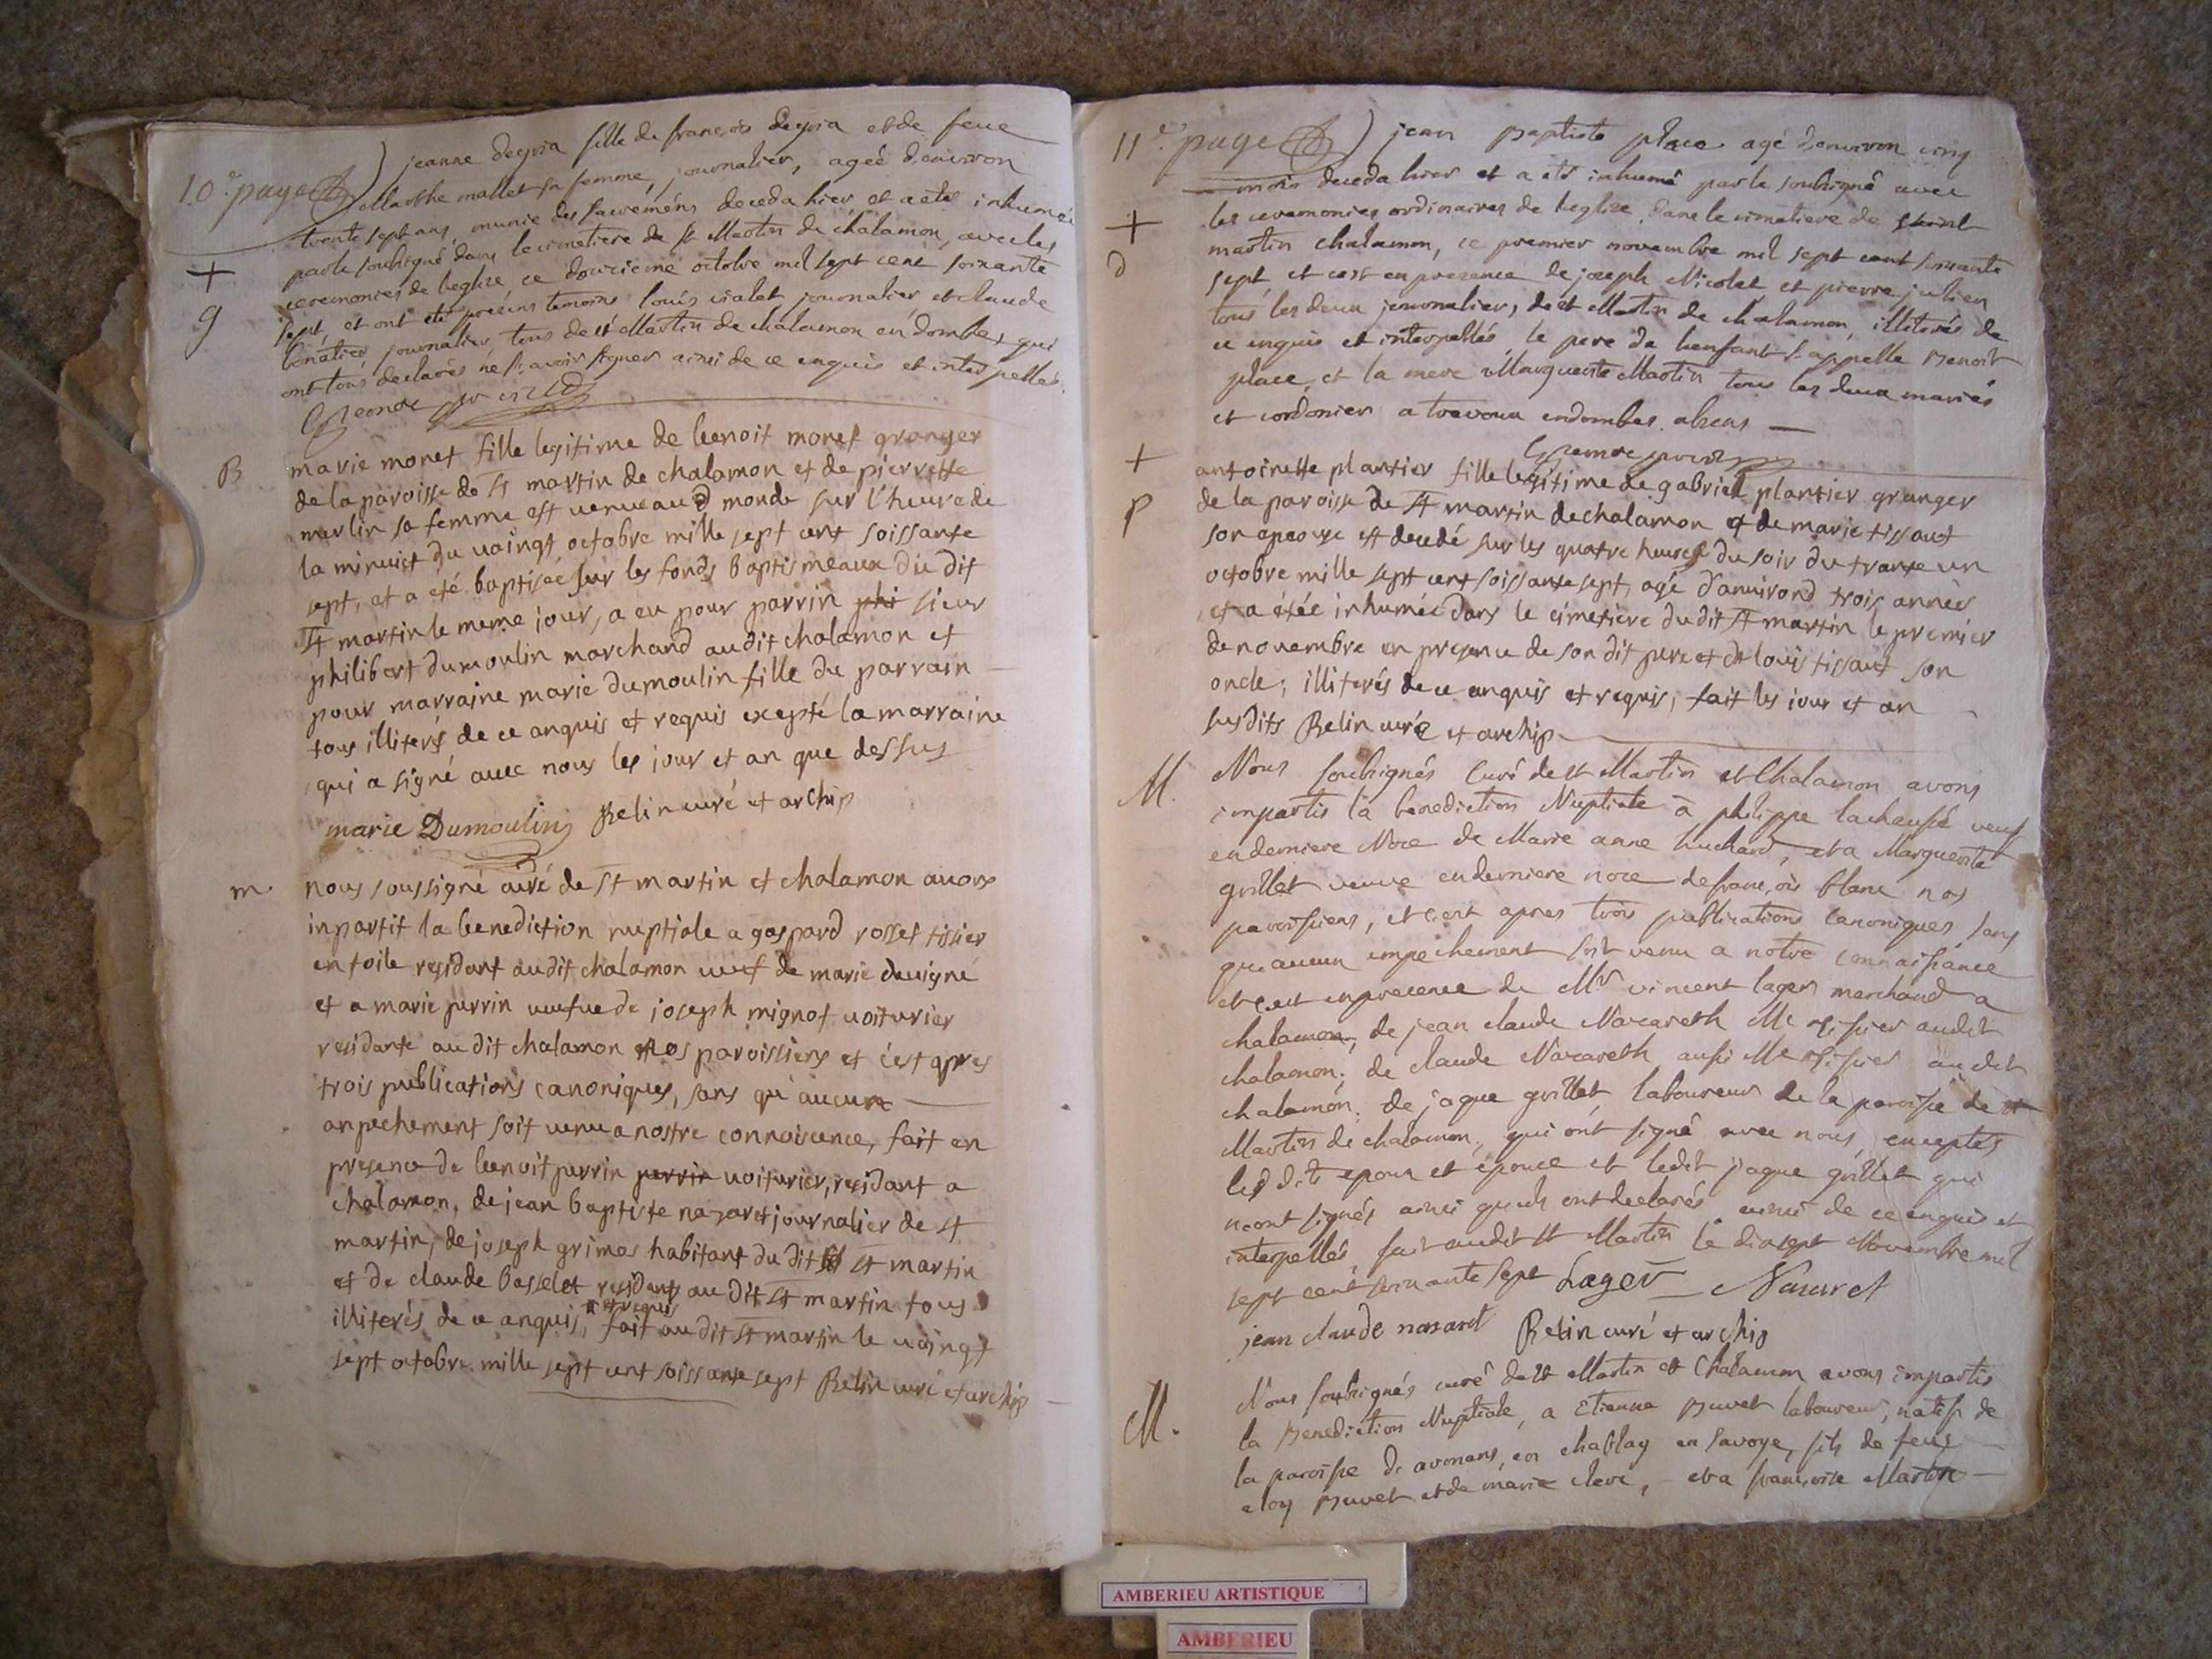 10.e page jeanne degria fille de françois degria et de feue
Marthe mallet sa femme, journalier, ageé d'environ
trente sept ans, munie des sacremens deceda hier et a eté inhumeé
par le soubsigné dans le cimetiere de st Martin de chalamon, avec les
+
ceremonies de l'eglise, ce douzieme octobre mil sept cent soixante
g
sept, et ont eté presens temoins louis vialet journalier et claude
journalier tous de st Martin de chalamon en dombes, qui
ont tous declarés ne scavoir signer ainsi de ce enquis et interpellés.
B
marie monet fille legitime de benoit monet granger
de la paroisse de St martin de chalamon et de pierrette
merlin sa femme est venue au monde sur l'heure de
la minuict du vaingt octobre mille sept cent soissante
sept, et a eté baptiseé sur les fonds baptismeaux du dit
St martin le meme jour, a eu pour parrin phi sieur
philibert dumoulin marchand au dit chalamon et
pour marraine marie dumoulin fille du parrain
tous illiterés de ce anquis et requis excepté la marraine
qui a signé avec nous les jour et an que dessus
marie Dumoulin Belin curé et archip
m.
nous soussigné curé de St martin et chalamon avons
inpartit la benediction nuptiale a gaspard rosset tissier
en toile residant au dit chalamon veuf de marie devigne
et a marie perrin veufve de joseph mignot voiturier
residante au dit chalamon nos paroissiens et c'est apres
trois publications canoniques, sans qu'aucun
anpechement soit venu a nostre connoiscence, fait en
presence de benoit perrin perrin voiturier, residant a
chalamon, de jean baptiste nazaret journalier de st
martin, de joseph grimes habitant du dit st martin
et de claude basselet residant au dit st martin tous
et requis
illiterés de ce anquis, fait au dit st martin le vaingt
sept octobre mille sept cent soissante sept Belin curé et archip
11.e page jean Baptiste place agé d'environ cinq
mois deceda hier et a eté inhumé par le soubsigné avec
+
les ceremonies ordinaires de l'eglise, dans le cimetiere de saint
d
martin chalamon, ce premier novembre mil sept cent soixante
sept et c'est en presence de joseph Nicolet et pierre julien
tous les deux journalier, de st Martin de chalamon, illiterés de
ce enquis et interpellés, le pere de l'enfant s'appelle Benoit
place, et la mere Marguerite Martin tous les deux mariés
et cordonier a trevoux en dombes. absens
+
antoinette plantier fille legitime de gabriel plantier granger
p
de la paroisse de St martin de chalamon et de marie tissaut
son epeouse est decedé sur les quatre heures du soir du trante un
octobre mille sept cent soissante sept, agé d'anvirond trois anneés
et a étéé inhumeé dans le cimetiere du dit St martin le premier
de novembre en presence de son dit pere et de louis tissaut son
oncle, illiterés de ce anquis et requis, fait les jour et an
susdits Belin curé et archip
M.
Nous soubsignés Curé de st Martin et Chalamon avons
impartis la benediction Nuptiale a philippe lachaussé veuf
en derniere Noce de Marie anne huchard, et a Marguerite
grillet veuve en derniere noce de françois blanc nos
paroissiens, et c'est apres trois publications canoniques sans
que aucun empechement soit venu a notre connaissance
et c'est en presence de Mr vincent lager marchand a
chalamon, de jean claude Nazareth Me audit
chalamon, de claude Nazareth aussi Me audit
chalamon, de jaque grillet laboureur de la paroisse de st
Martin de chalamon, qui ont signé avec nous, exceptés
les dit epoux et épouce et ledit jaque grillet qui
n'ont signés ainsi qu'ils ont declarés ainsi de ce enquis et
interpellés, fait audit st Martin le dixsept Novembre mil
sept cent soixante sept Lager Nazaret
jean claude nazaret Belin curé et archip
M.
Nous soubsignés curé de st Martin et Chalamon avons impartis
la Benediction Nuptiale, a Etienne Buvet laboureur, natif de
la paroisse de avonans, en chablay en savoye, fils de feu
eloy Buvet et de marie clere, et a françoise Martin
AMBERIEU ARTISTIQUE
AMBERIEU